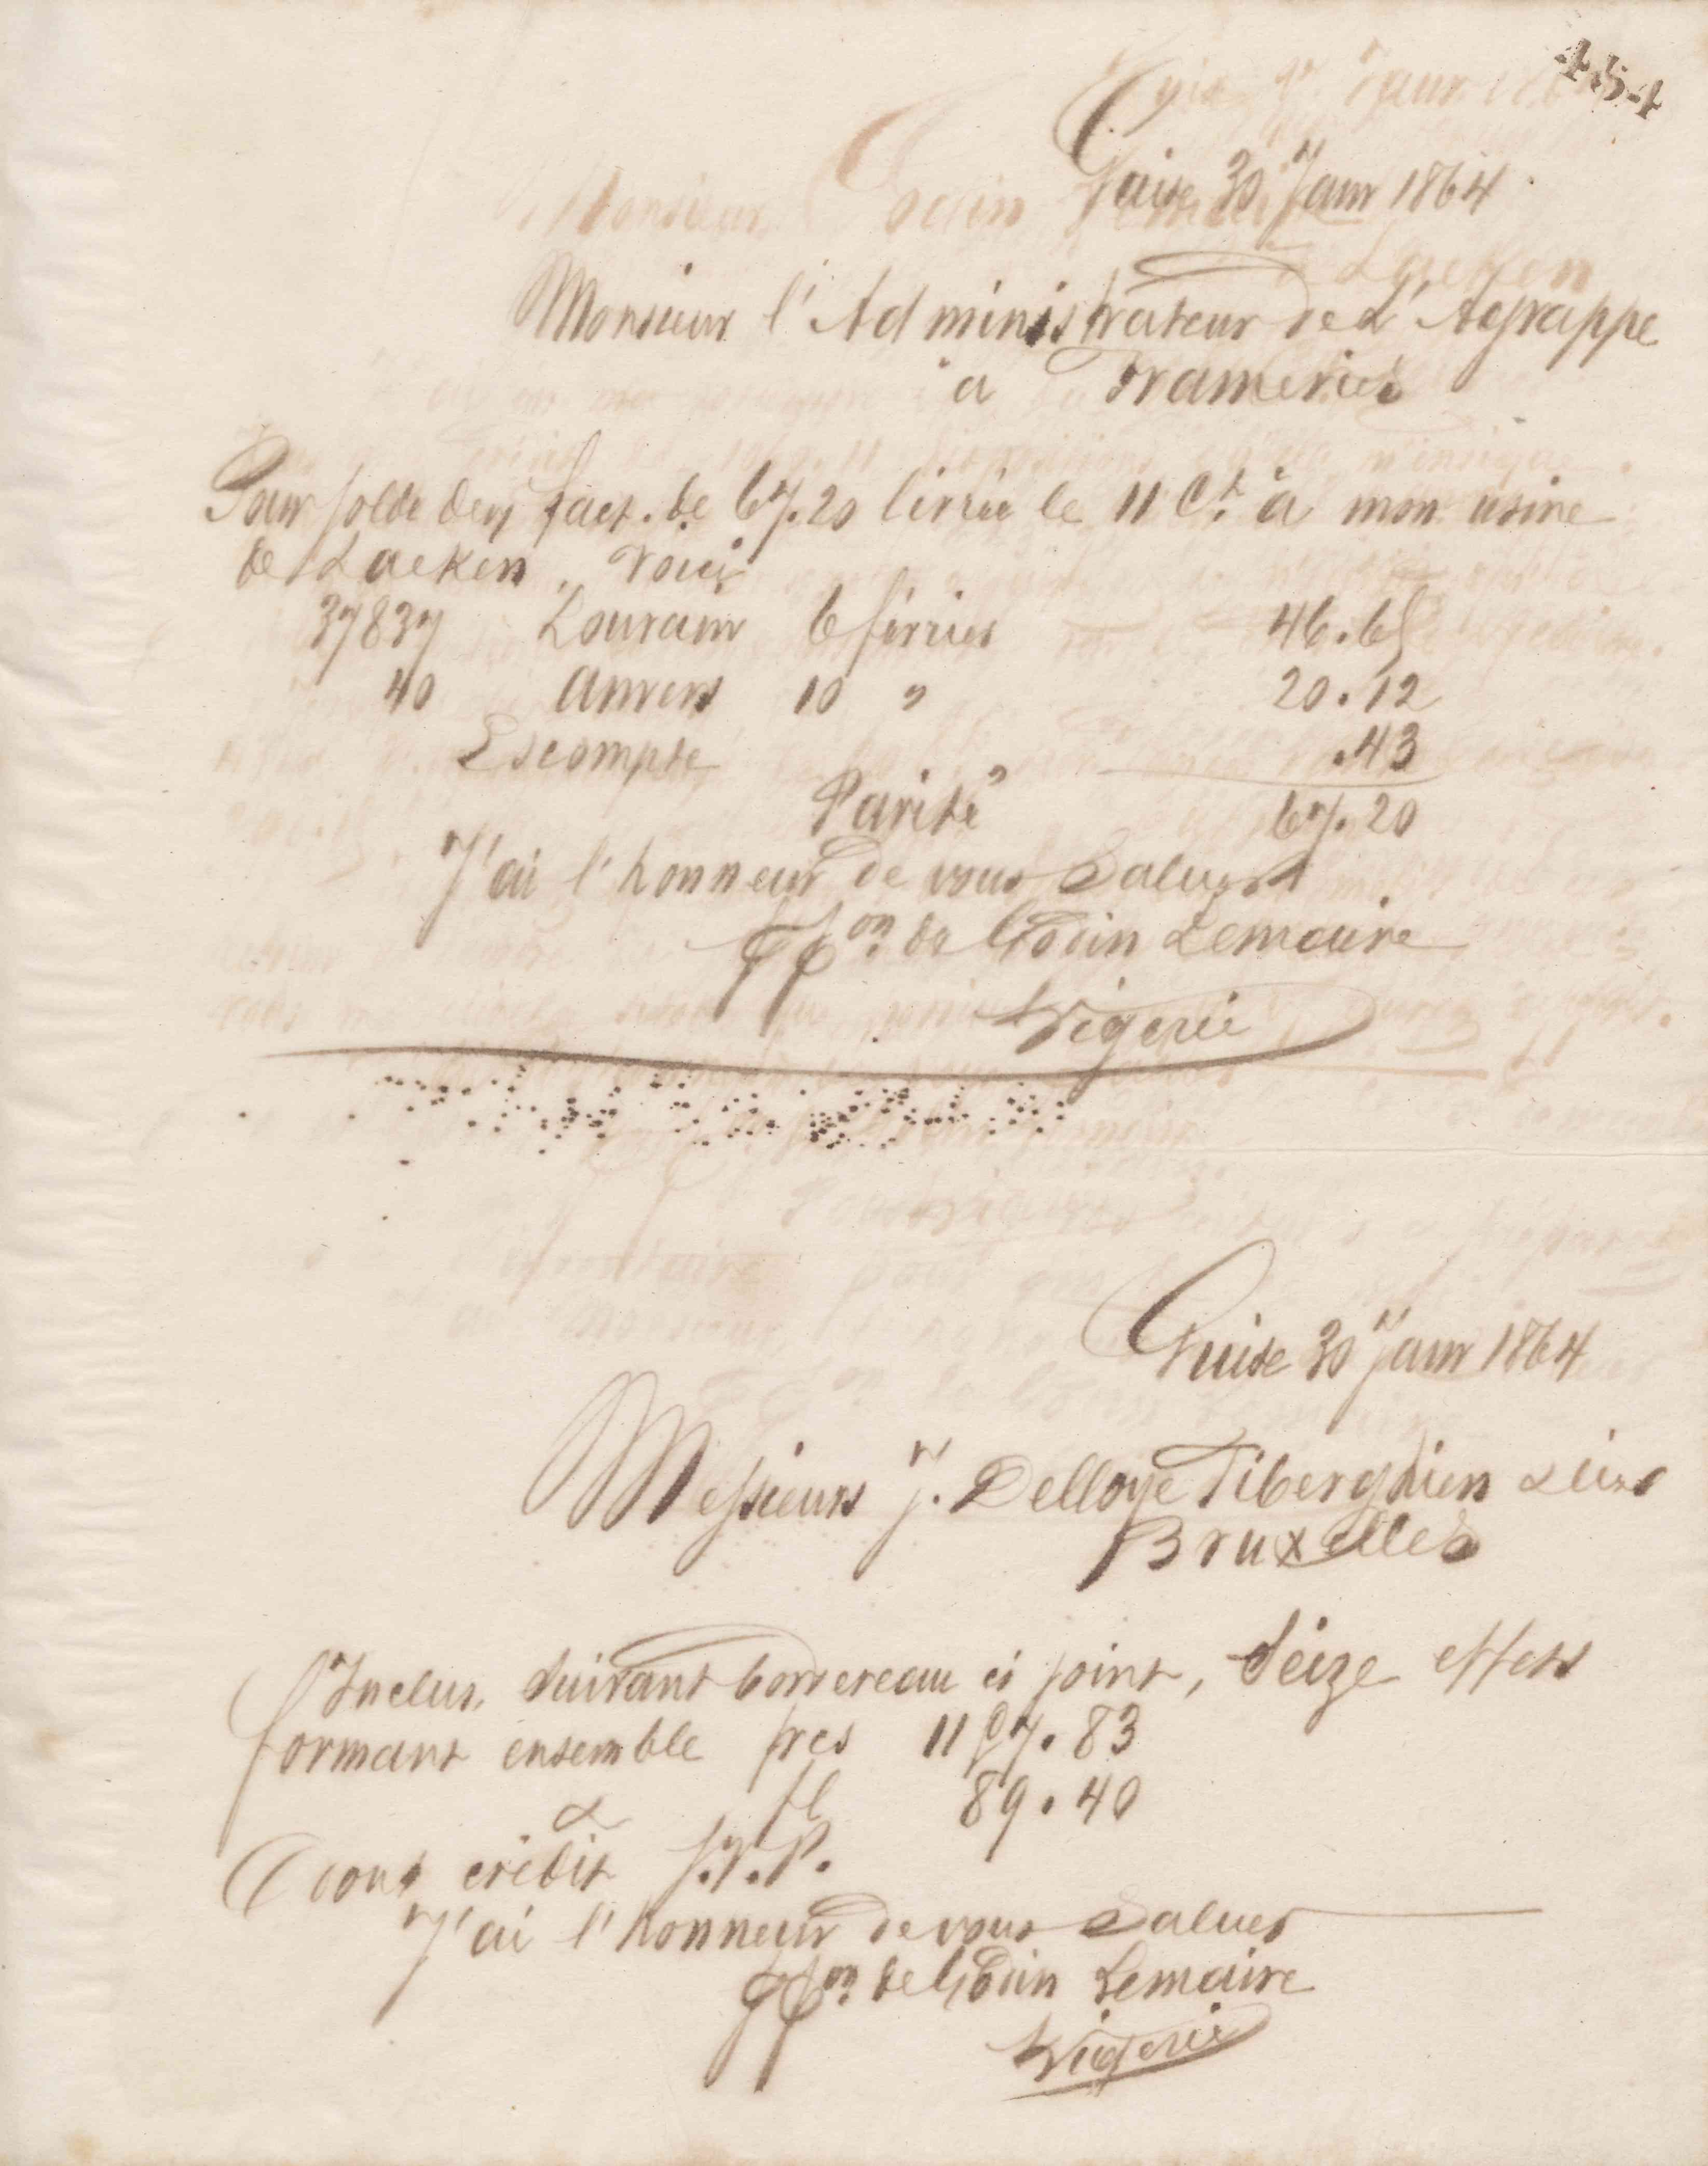 454
Guise 30 Janr 1864
Monsieur l'Administrateur de L'Agrappe
a Frameries
Pour solde de vj fact. de 67.20 livrée le 11 Ct. à mon usine
de Laeken, voici
37837 Louvain 6 février 46.65
40 Anvers 10 " 20.12
Escompte .43
Parité 67.20
J'ai l'honneur de vous saluer
PPon. de Godin Lemaire
Vigerie
Guise 30 Janr 1864
Messieurs J. Delloye Tiberghien & Cie
Bruxelles
Inclus, suivant bordereau ci joint, Seize effets
formant ensemble frcs 1157.83
& fl 89.40
A vous crédit S.V.P.
J'ai l'honneur de vous saluer
PPon. de Godin Lemaire
Vigerie